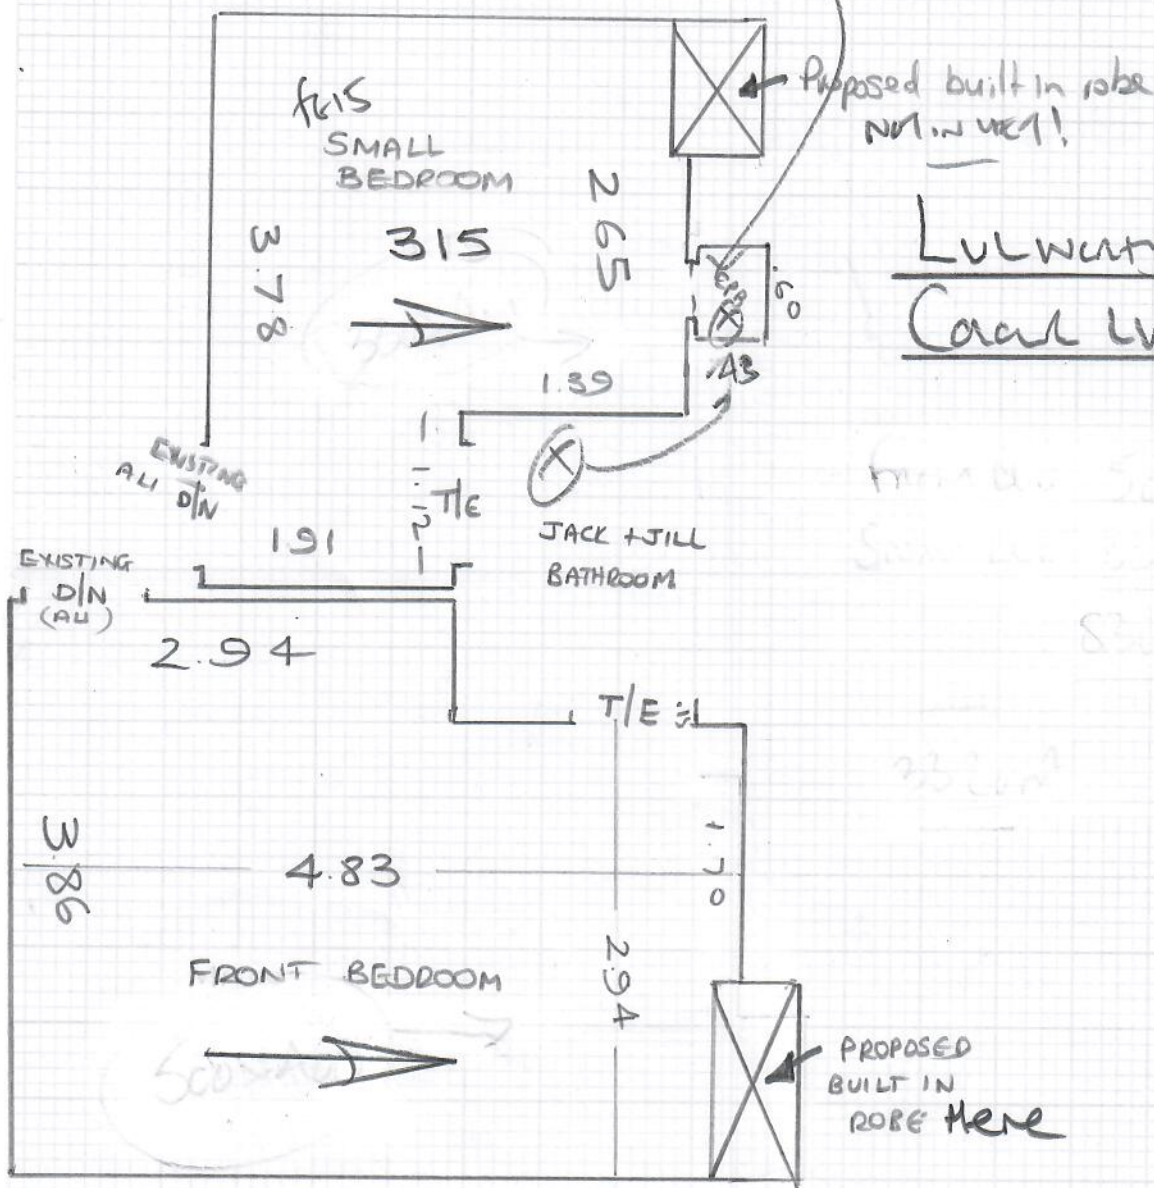 Proposed built in robe
NOT IN YET!
SMALL
BEDROOM
3.78
315
2.65
.60
.43
1.39
EXISTING
ALI D/N
1.12
T/E
191
JACK + JILL
BATHROOM
EXISTING
D/N
(ALI)
2.94
T/E
3.86
4.83
1.70
2.94
FRONT BEDROOM
PROPOSED
BUILT IN
ROBE Here